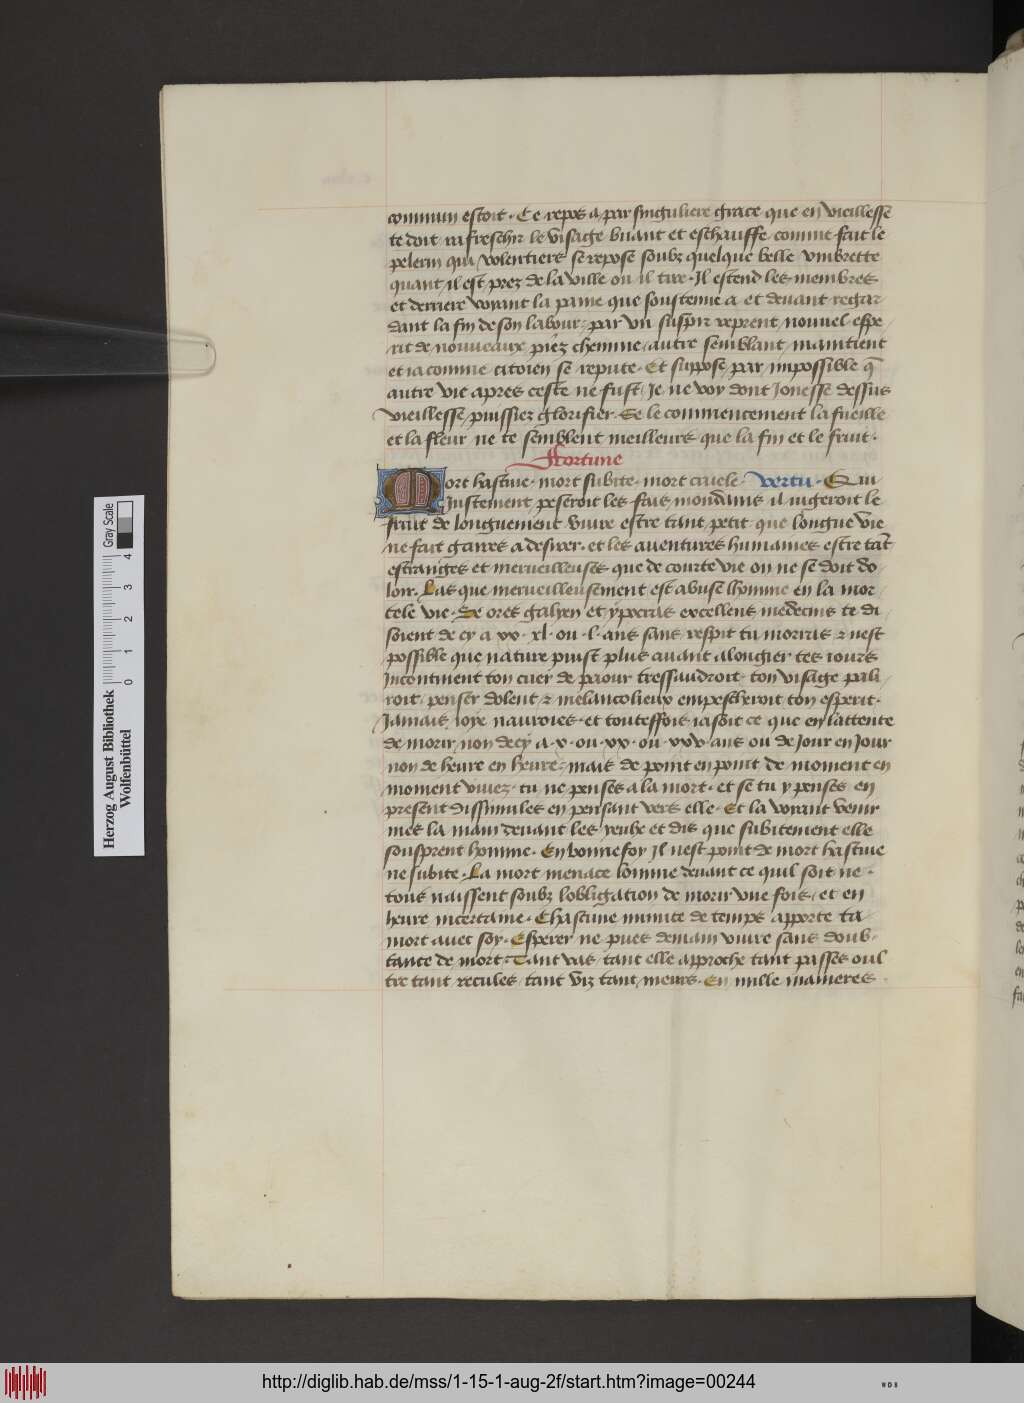 commun estoit · Ce repos a par singuliere grace que en vieillesse
te doit rafreschir le visage buant et eschauffe comme fait le
pelerin qui volentiers se repose soubz quelque belle umbrette
quant il est prez de la ville ou il tire · Il estend les membres
et derriere voyant la paine que soustenue a et devant regar
dant la fin de son labour par un suspir reprent nouvel espe
rit de nouveaux piez chemine autre semblant maintient
et ia comme citoien se repute · Et supose par impossible q̄
autre vie apres ceste ne fust Je ne voy dont Jonesse dessus
vieillesse puissiez glorifier · Se le commencement la fueille
et la fleur ne te semblent meilleurs que la fin et le fruit ·
Ffortune
Mort hastive · mort subite · mort cruele · Vertu · Qui
Justement peseroit les fais mondains il iugeroit le
fruit de longuement vivre estre tant petit que longue vie
ne fait gaires a desirer · et les aventures humaines estre tāt
estranges et merveilleuses que de courte vie on ne se doit do
loir · Las que merveilleusement est abuse lhomme en la mor
tele vie · Se ores galyen et ypocras excellens medecins te di
soient de cy a xx · xl · ou · l · ans sans respit tu morras ⁊ nest
possible que nature puist plus avant alongier tes iours
Incontinent ton cuer de paour tressaudroit ton visage pali
roit penser dolent ⁊ melancolieux empescheroit ton esperit ·
Jamais ioye n'auroies · et touteffois iasoit ce que en l'attente
de morir non decy a · x · ou · xx · ou · xxv · ans ou de Jour en Jour
non de heure en heure mais de point en point de moment en
moment vivez tu ne penses a la mort · et se tu y penses en
present dissimules en pensant vers elle · Et la voyant venir
mes la main devant les yeulx et dis que subitement elle
sousprent homme · En bonne foy Il nest point de mort hastive
ne subite · La mort menace lomme devant ce quil soit ne ·
tous naissent soubz lobligation de morir une fois et en
heure incertaine · Chascune minute de temps apporte ta
mort avec soy · Esperer ne pues demain vivre sans doub
tance de mort · Tant vas tant elle approche tant passes oul
tre tant recules tant viz tant meurs · En mille manieres
Herzog August Bibliothek
Wolfenbüttel
0 1 2 3 4
Gray Scale
http://diglib.hab.de/mss/1-15-1-aug-2f/start.htm?image=00244
WDB